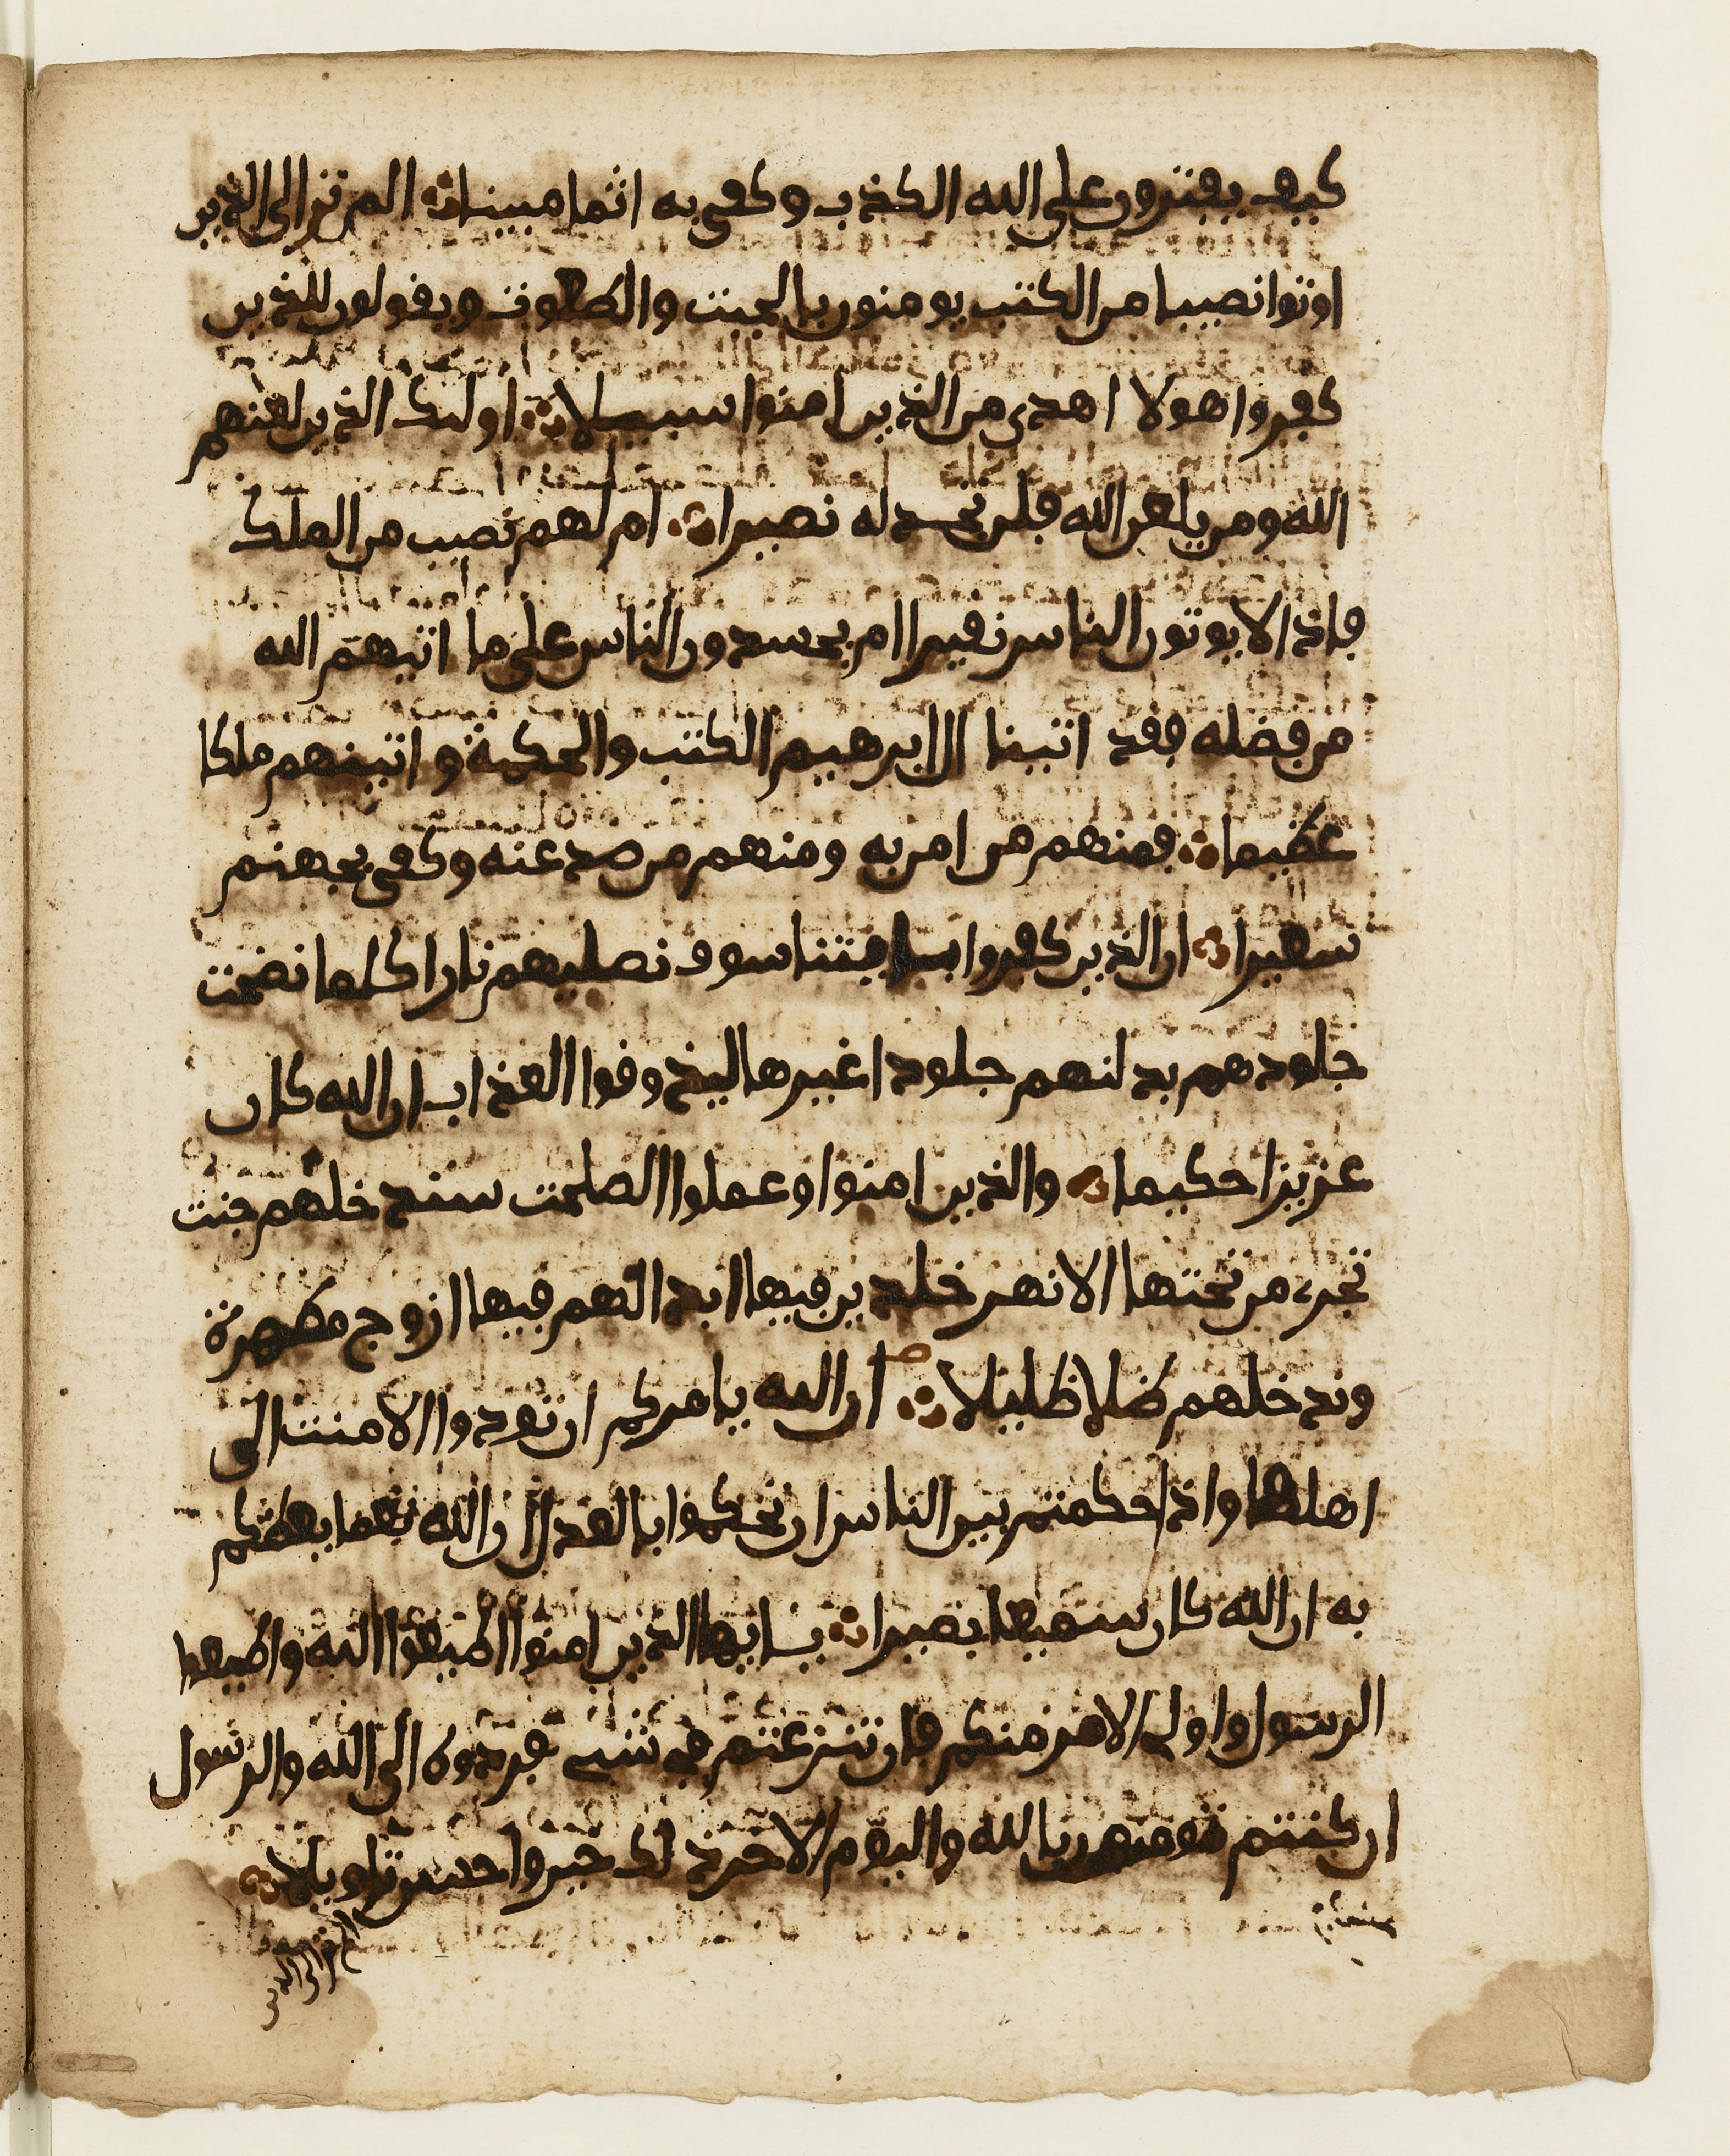 كيف يفترون على الله الكذب وكفى به اثما مبينا الم تر الى الذين
اوتوا نصيبا من الكتب يومنون بالجبت والطغوت ويقولون للذين
كفروا هولا اهدى من الذين امنوا سبيلا اولىك الذين لعنهم
الله ومن يلعن الله فلن تجد له نصيرا ام لهم نصيب من الملك
فاذا لا يوتون الناس نقيرا ام يحسدون الناس على ما اتيهم الله
من فضله فقد اتينا ال ابرهيم الكتب والحكمة واتينهم ملكا
عظيما فمنهم من امن به ومنهم من صد عنه وكفى بجهنم
سعيرا ان الذين كفروا بايتنا سوف نصليهم نارا كلما نضجت
جلودهم بدلنهم جلودا غيرها ليذوقوا العذاب ان الله كان
عزيزا حكيما والذين امنوا وعملوا الصلحت سندخلهم جنت
تجرى من تحتها الانهر خلدين فيها ابدا لهم فيها ازوج مطهرة
وندخلهم ظلا ظليلا ان الله يامركم ان تودوا الامنت الى
اهلها واذا حكمتم بين الناس ان تحكموا بالعدل ان الله نعما يعظكم
به ان الله كان سميعا بصيرا يايها الذين امنوا اطيعوا الله واطيعوا
الرسول واولى الامر منكم فان تنزعتم فى شىء فردوه الى الله والرسول
ان كنتم تومنون بالله واليوم الاخر ذلك خير واحسن تاويلا
الم تر الى الذين